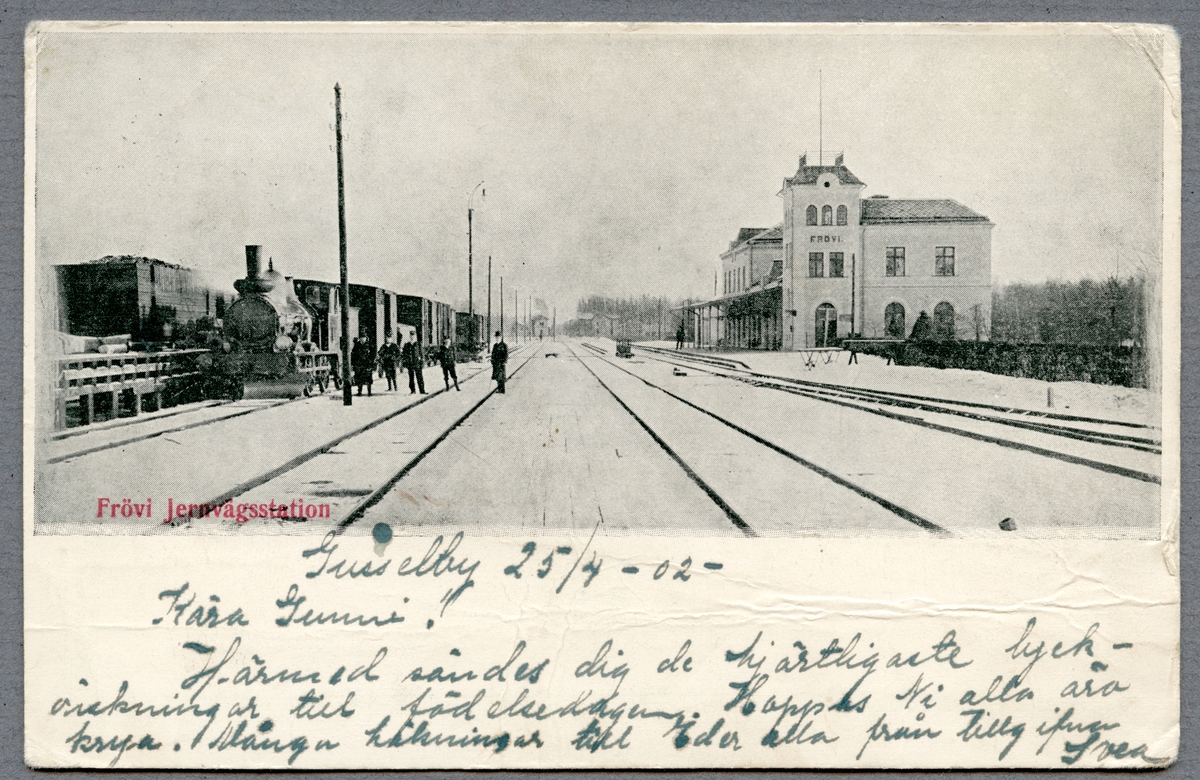 FRÖVI.
Frövi Jernvägsstation
Gusselby 25/4 -02-
Kära Gunni!
Härmed sändes dig de hjärtligaste lyck-
önskningar till födelsedagen. Hoppas Ni alla äro
krya. Många hälsningar till Eder alla från tillgifna
Svea